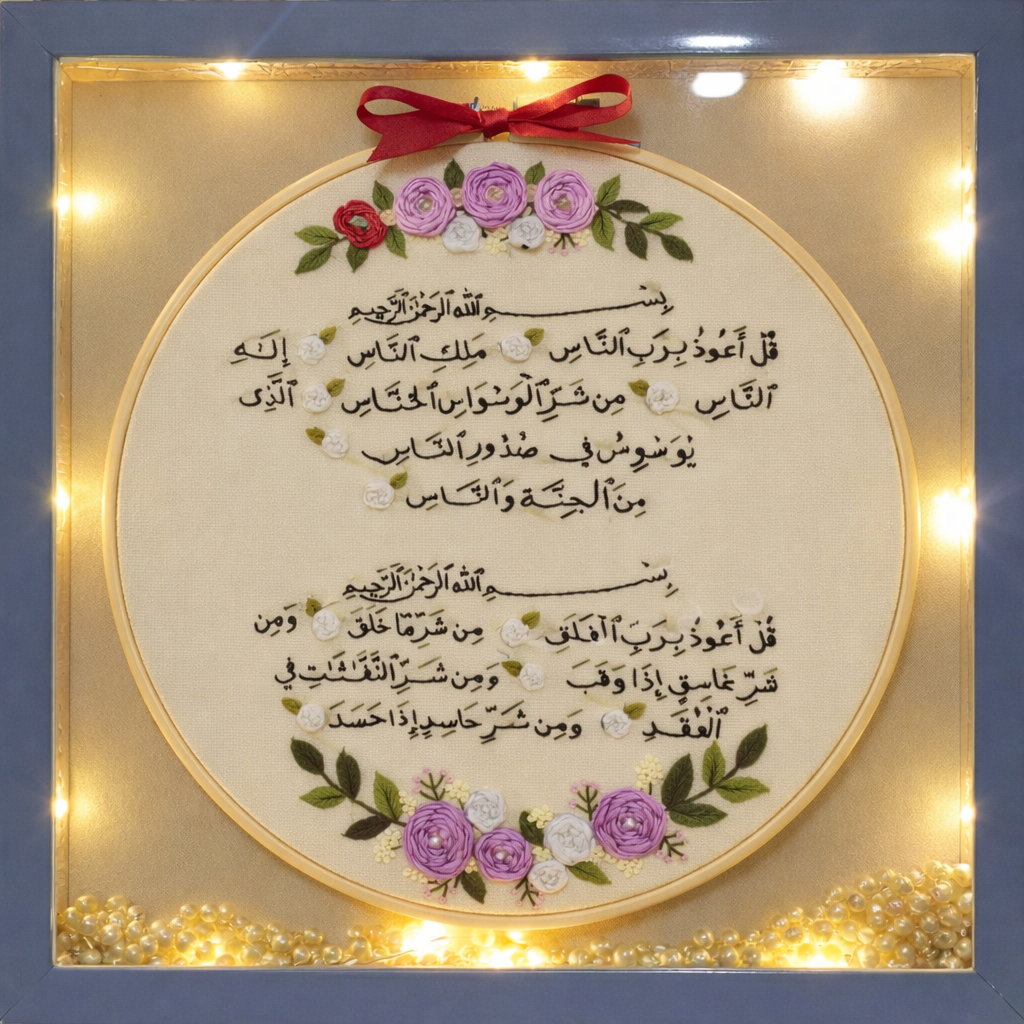 بِسْـــــمِ اللّٰهِ الرَّحْمٰنِ الرَّحِيمِ
قُلْ أَعُوذُ بِرَبِّ ٱلنَّاسِ مَلِكِ ٱلنَّاسِ إِلَـٰهِ
ٱلنَّاسِ مِن شَرِّ ٱلْوَسْوَاسِ ٱلْخَنَّاسِ ٱلَّذِى
يُوَسْوِسُ فِى صُدُورِ ٱلنَّاسِ
مِنَ ٱلْجِنَّةِ وَٱلنَّاسِ
بِسْـــــمِ اللّٰهِ الرَّحْمٰنِ الرَّحِيمِ
قُلْ أَعُوذُ بِرَبِّ ٱلْفَلَقِ مِن شَرِّ مَا خَلَقَ وَمِن
شَرِّ غَاسِقٍ إِذَا وَقَبَ وَمِن شَرِّ ٱلنَّفَّـٰثَـٰتِ فِي
ٱلْعُقَدِ وَمِن شَرِّ حَاسِدٍ إِذَا حَسَدَ